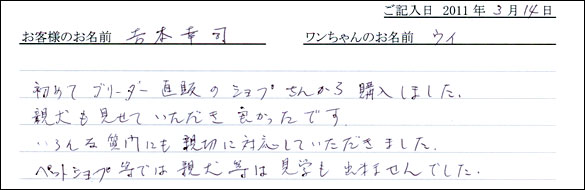 ご記入日 2011年3月14日
お客様のお名前 吉本幸司 ワンちゃんのお名前 ウィ
初めてブリーダー直販のショップさんから購入しました。
親犬も見せていただき良かったです。
いろんな質問にも親切に対応していただきました。
ペットショップ等では親犬等は見学も出来ませんでした。